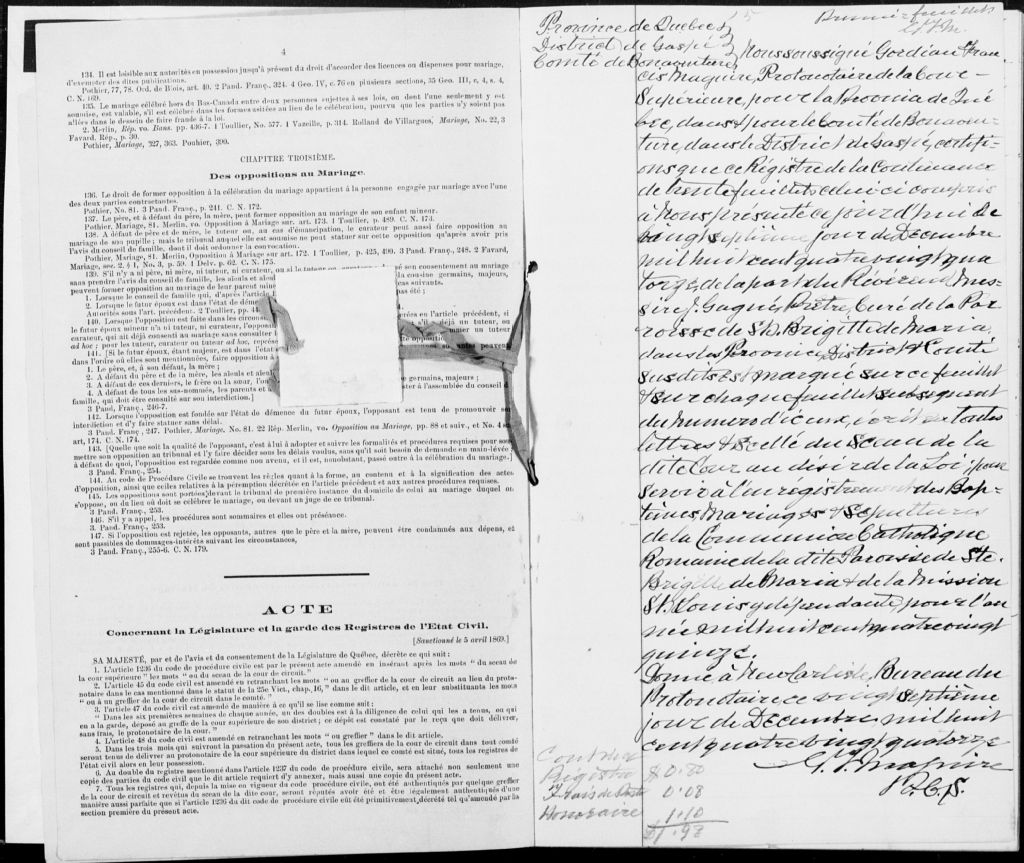 4
134. Il est loisible aux autorités en possession jusqu'à présent du droit d'accorder des licences ou dispenses pour mariage,
d'exempter des dites publications.
Pothier, 77, 78. Ord. de Blois, art. 40. 2 Pand. Franç., 324. 4 Geo. IV, c. 76 en plusieurs sections, 35 Geo. III, c. 4, s. 4,
C. N. 169.
135. Le mariage célébré hors du Bas-Canada entre deux personnes sujettes à ses lois, ou dont l'une seulement y est
soumise, est valable, s'il est célébré dans les formes usitées au lieu de la célébration, pourvu que les parties n'y soient pas
allées dans le dessein de faire fraude à la loi.
2. Merlin, Rép. vo. Bans. pp. 436-7. 1 Toullier, No. 577. 1 Vazeille, p. 314. Rolland de Villargues, Mariage, No. 22, 3
Favard. Rép., p. 30.
Pothier, Mariage, 327, 363. Pouhier, 390.
CHAPITRE TROISIÈME.
Des oppositions au Mariage.
136. Le droit de former opposition à la célébration du mariage appartient à la personne engagée par mariage avec l'une
des deux parties contractantes.
Pothier, No. 81. 3 Pand. Franç., p. 241. C. N. 172.
137. Le père, et à défaut du père, la mère, peut former opposition au mariage de son enfant mineur.
Pothier, Mariage, 81. Merlin, vo. Opposition à Mariage sur. art. 173. 1 Toullier, p. 489. C. N. 173.
138. A défaut de père et de mère, le tuteur ou, au cas d'émancipation, le curateur peut aussi faire opposition au
mariage de son pupille; mais le tribunal auquel elle est soumise ne peut statuer sur cette opposition qu'après avoir pris
l'avis du conseil de famille, dont il doit ordonner la convocation.
Pothier, Mariage, 81. Merlin, Opposition à Mariage sur art. 172. 1 Toullier, p. 425, 490. 3 Pand. Franç., 248. 2 Favard,
Mariage, sec. 2, § 1, No. 3, p. 59. 1 Delv. p. 62. C. N. 175.
139. S'il n'y a ni père, ni mère, ni tuteur, ni curateur, ou si le tuteur ou son consentement au mariage
sans prendre l'avis du conseil de famille, les aïeuls et la cousine germains, majeurs,
peuvent former opposition au mariage de leur parent cas suivants.
1. Lorsque le conseil de famille qui, d'après l'article pas été;
2. Lorsque le futur époux est dans l'état de
Autorités sous l'art. précédent. 2 Toullier, pp.
140. Lorsque l'opposition est faite dans les en l'article précédent, si
le futur époux mineur n'a ni tuteur, ni curateur, déjà un tuteur, ou
curateur, qui ait déjà consenti au mariage sans consulter un tuteur
ad hoc; pour les tuteur, curateur ou tuteur ad hoc, opposition
141. [Si le futur époux, étant majeur, est dans peuvent
dans l'ordre où elles sont mentionnées, faire opposition
1. Le père, et, à son défaut, la mère;
2. A défaut du père et de la mère, les aïeuls et
3. A défaut de ces derniers, le frère ou la sœur, germains, majeurs;
4. A défaut de tous les sus-nommés, les parents et à l'assemblée du conseil d
famille, qui doit être consulté sur son interdiction.]
3 Pand, Franç., 246-7.
142. Lorsque l'opposition est fondée sur l'état de démence du futur époux, l'opposant est tenu de promouvoir
interdiction et d'y faire statuer sans délai.
3 Pand. Franç., 247. Pothier, Mariage, No. 81. 22 Rép. Merlin, vo. Opposition au Mariage, pp. 88 et suiv., et No. 4
art, 174. C. N. 174.
143. [Quelle que soit la qualité de l'opposant, c'est à lui à adopter et suivre les formalités et procédures requises pour
mettre son opposition au tribunal et l'y faire décider sous les délais voulus, sans qu'il soit besoin de demande en main-levée
à défaut de quoi, l'opposition est regardée comme non avenu, et il est, nonobstant, passé outre à la célébration du mariage.]
3 Pand. Franç., 254.
144. Au code de Procédure Civile se trouvent les règles quant à la forme, au contenu et à la signification des actes
d'opposition, ainsi que celles relatives à la péremption décrétée en l'article précédent et aux autres procédures requises.
145. Les oppositions sont portées devant le tribunal de première instance du domicile de celui au mariage duquel on
s'oppose, ou du lieu où doit se célébrer le mariage, ou devant un juge de ce tribunal.
3 Pand. Franç., 253.
146. S'il y a appel, les procédures sont sommaires et elles ont préséance.
3. Pand. Franç., 253.
147. Si l'opposition est rejetée, les opposants, autres que le père et la mère, peuvent être condamnés aux dépens, et
sont passibles de dommages-intérêts suivant les circonstances,
3 Pand, Franç., 255-6. C. N. 179.
ACTE
Concernant la Législature et la garde des Registres de l'Etat Civil.
[Sanctionné le 5 avril 1869.]
SA MAJESTÉ, par et de l'avis et du consentement de la Législature de Québec, décrète ce qui suit:
1. L'article 1236 du code de procédure civile est par le présent acte amendé en insérant après les mots "du sceau de
la cour supérieure" les mots "ou du sceau de la cour de circuit."
2. L'article 45 du code civil est amendé en retranchant les mots "ou au greffier de la cour de circuit au lieu du proto-
notaire dans le cas mentionné dans le statut de la 25e Vict., chap, 16," dans le dit article, et en leur substituant les mots
"ou à un greffier de la cour de circuit dans le comté."
3. l'article 47 du code civil est amendé de manière à ce qu'il se lise comme suit:
"Dans les six premières semaines de chaque année, un des doubles est à la diligence de celui qui les a tenus, ou qui
en a la garde, déposé au greffe de la cour supérieure de son district; ce dépôt est constaté par le reçu que doit délivrer,
sans frais, le protonotaire de la cour."
4. L'article 48 du code civil est amendé en retranchant les mots "ou greffier" dans le dit article.
5. Dans les trois mois qui suivront la passation du présent acte, tous les greffiers de la cour de circuit dans tout comté
seront tenus de délivrer au protonotaire de la cour supérieure du district dans lequel ce comté est situé, tous les registres de
l'état civil alors en leur possession.
6. Au double du registre mentionné dans l'article 1237 du code de procédure civile, sera annexé non seulement une
copie des parties du code civil que le dit article requiert d'y annexer, mais aussi une copie du présent acte.
7. Tous les registres qui, depuis la mise en vigueur du code procédure civile, ont été authentiqués par quelque greffier
de la cour de circuit et revêtus du sceau de la dite cour, seront réputés avoir été et être légalement authentiqués d'une
manière aussi parfaite que si l'article 1236 du dit code de procédure civile eût été primitivement décrété tel qu'amendé par la
section première du présent acte.
Premier feuillet
Province de Quebec
District de Gaspé
Comté de Bonaventure
Nous soussigné Gordian Fran
cis Maguire, Protonotaire de la Cour
Supérieure, pour la Province de Qué
bec, dans & pour le Comté de Bonaven-
ture, dans le District de Gaspé, certifi-
ons que ce Régistre de la Contenance
de trente feuillets, celui-ci compris
à Nous présenté ce jourd'hui le
vingt septième jour de Décembre
mil huit cent quatre vingt qua
torze, de la part du Révérend Mes-
sire J. Gagné, Prêtre, Curé de la Pa
roisse de St. Brigitte de Maria,
dans les Province, District & Comté
susdits est marqué sur ce feuillet
& sur chaque feuillet subséquent
du numero d'iceux, écrit en toutes
lettres & scellé du Sceau de la
dite Cour au désir de la Loi, pour
servir à l'enrégistrement des Bap-
têmes, Mariages & Sépultures
de la Communion Catholique
Romaine de la dite Paroisse de Ste
Brigitte de Maria & de la Mission
St. Louis y dépendante pour l'an
née mil huit cent quatre vingt
quinze.
Donné à New Carlisle, Bureau du
Protonotaire ce vingt septième
jour de Décembre mil huit
cent quatre vingt quatorze
G. F. Maguire
P. C. S.
Registre $0.80
Frais de Poste 0.08
Honoraire 1.10
$1.98